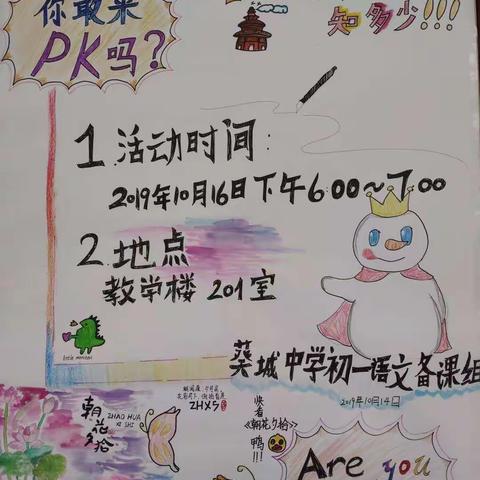 你敢来
PK吗?
知多少!!!
1.活动时间:
2019年10月16日下午6:00~7:00
2.地点
教学楼 201室
little monster
葵城中学初一语文备课组
2019年10月14日
朝花夕拾
ZHAO HUA
XI SHI
ZHXS
快看
《朝花夕拾》
鸭!!!
Are you